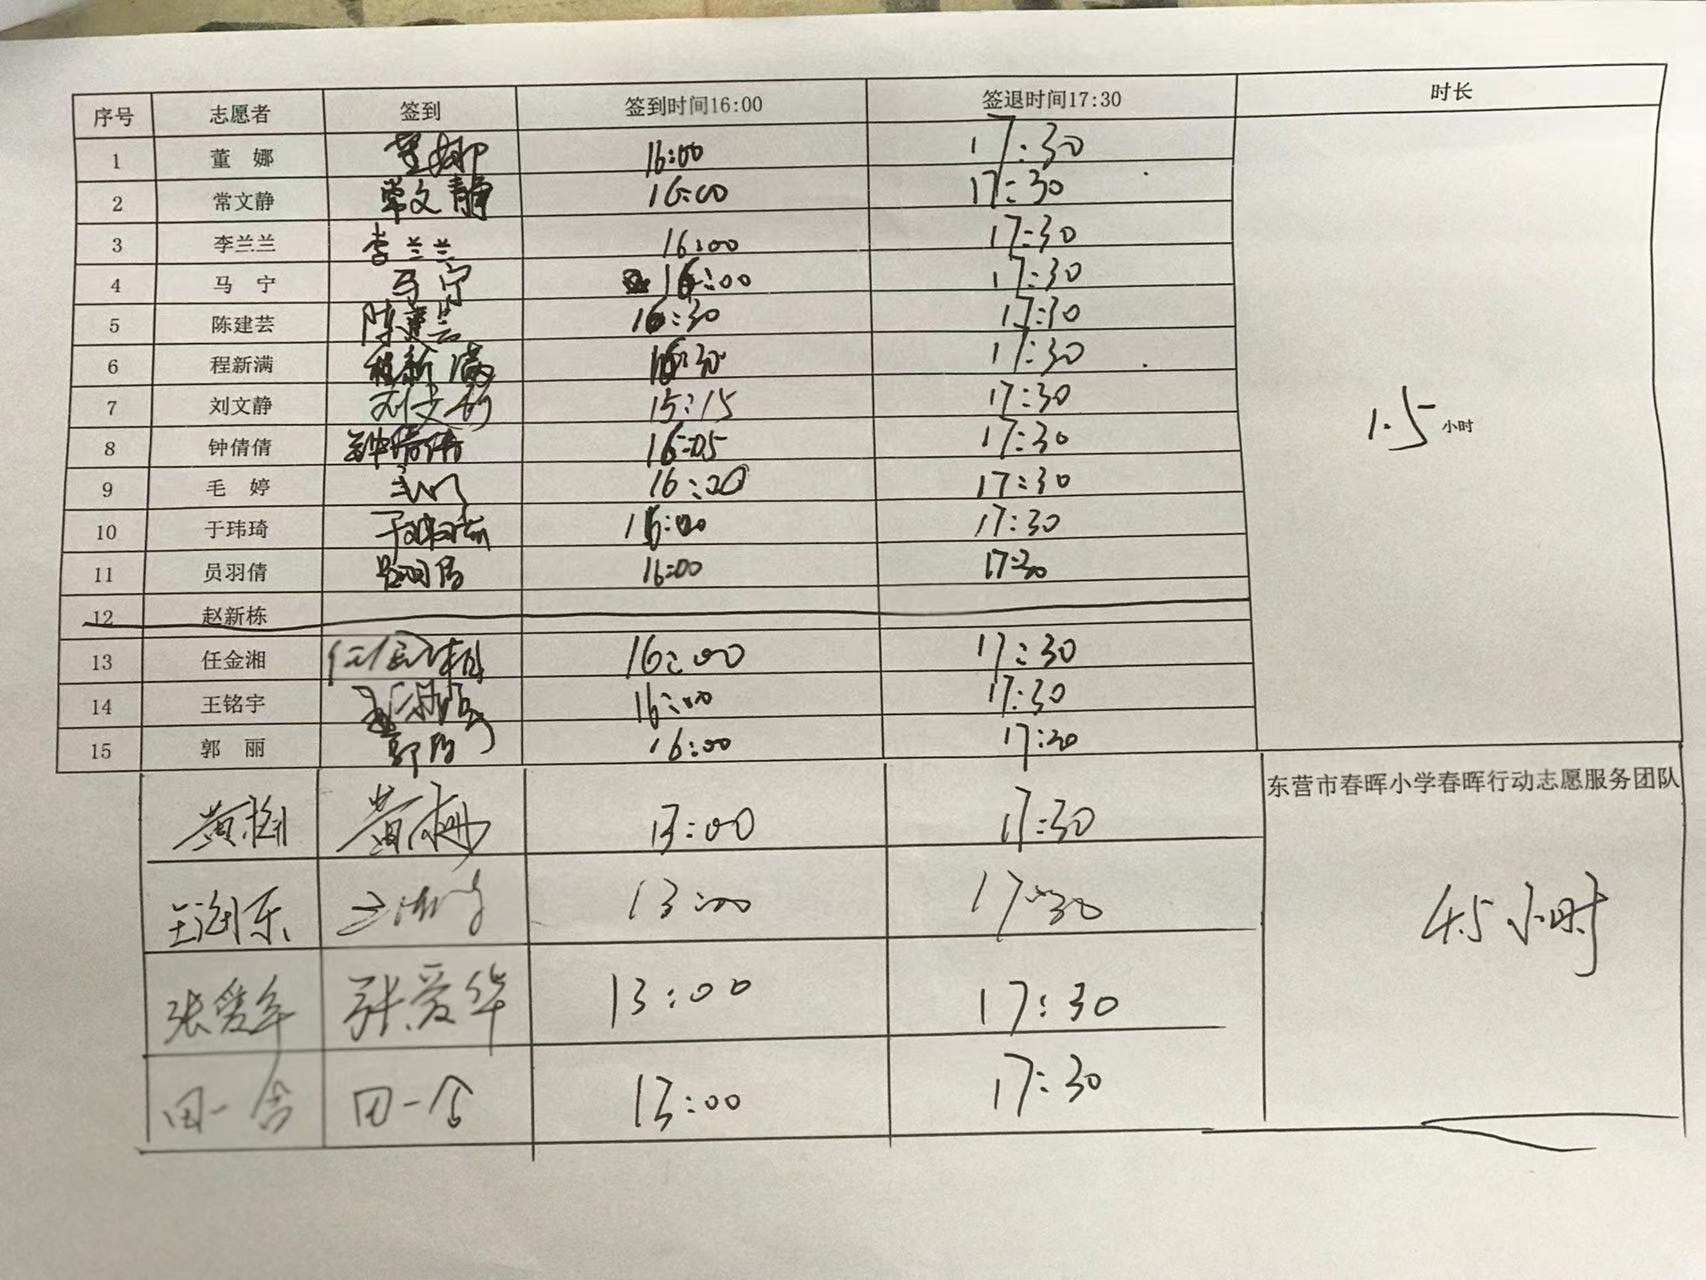 序号 志愿者 签到 签到时间16:00 签退时间17:30 时长
1 董 娜 董娜 16:00 17:30
2 常文静 常文静 16:00 17:30
3 李兰兰 李兰兰 16:00 17:30
4 马 宁 马宁 16:00 17:30
5 陈建芸 陈建芸 16:30 17:30
6 程新满 程新满 16:30 17:30
7 刘文静 刘文静 15:15 17:30
1.5 小时
8 钟倩倩 钟倩倩 16:05 17:30
9 毛 婷 16:20 17:30
10 于玮琦 于玮琦 16:00 17:30
11 员羽倩 16:00 17:30
12 赵新栋
13 任金湘 任金湘 16:00 17:30
14 王铭宇 16:00 17:30
15 郭 丽 郭丽 16:00 17:30
东营市春晖小学春晖行动志愿服务团队
黄梅 黄梅 13:00 17:30
13:00 17:30
4.5小时
张爱华 张爱华 13:00 17:30
田一含 田一含 13:00 17:30